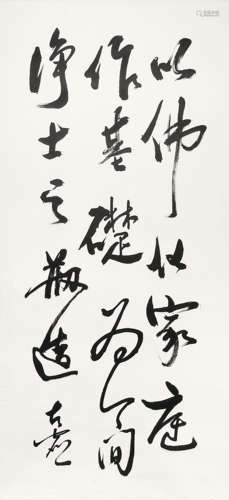 以佛化家庭
作基礎為人间
淨土之剏造